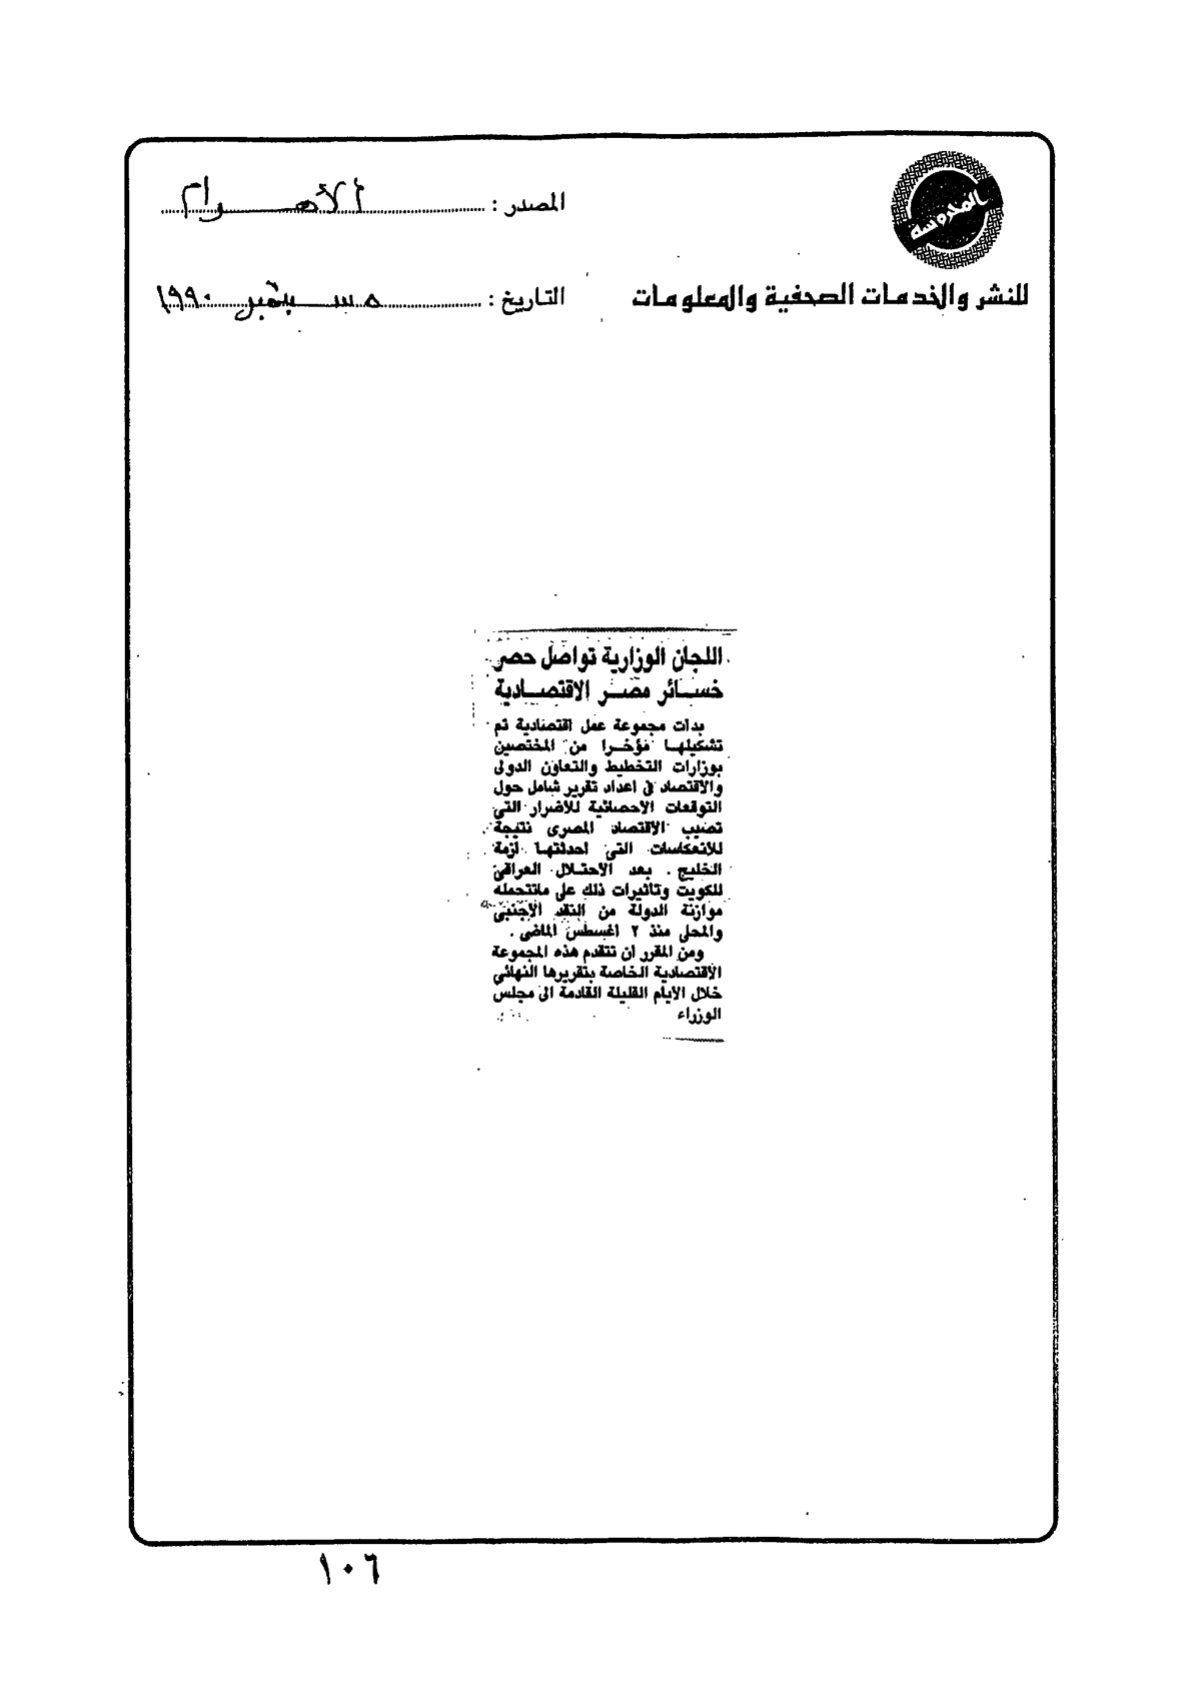 المحروسة
المصدر : الأهرام
للنشر والخدمات الصحفية والمعلومات
التاريخ : ٥ سبتمبر ١٩٩٠
اللجان الوزارية تواصل حصر
خسائر مصر الاقتصادية
بدات مجموعة عمل اقتصادية تم
تشكيلها مؤخرا من المختصين
بوزارات التخطيط والتعاون الدولى
والاقتصاد فى اعداد تقرير شامل حول
التوقعات الاحصائية للاضرار التى
تصيب الاقتصاد المصرى نتيجة
للانعكاسات التى احدثتها ازمة
الخليج . بعد الاحتلال العراقى
للكويت وتاثيرات ذلك على ماتتحمله
موازنة الدولة من النقد الاجنبى
والمحلى منذ ٢ اغسطس الماضى .
ومن المقرر ان تتقدم هذه المجموعة
الاقتصادية الخاصة بتقريرها النهائى
خلال الايام القليلة القادمة الى مجلس
الوزراء
١٠٦